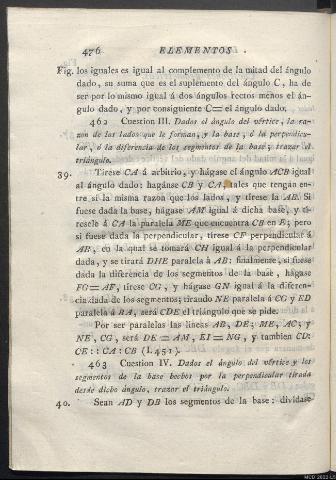 476 ELEMENTOS.
Fig. los iguales es igual al complemento de la mitad del ángulo
dado, su suma que es el suplemento del ángulo C, ha de
ser por lo mismo igual á dos ángulos rectos menos el án-
gulo dado, y por consiguiente C= el ángulo dado.
462 Cuestion III. Dados el ángulo del vértice, la ra-
zon de los lados que le forman, y la base, ó la perpendicu-
lar, ó la diferencia de los segmentos de la base; trazar el
triángulo.
39. Tírese CA á arbitrio, y hágase el ángulo ACB igual
al ángulo dado: hagánse CB y CA, tales que tengan en-
tre sí la misma razon que los lados, y tírese la AB. Si
fuese dada la base, hágase AM igual á dicha base, y tí-
resele á CA la paralela ME que encuentra CB en E; pero
si fuese dada la perpendicular, tírese CF perpendicular á
AB, en la qual se tomará CH igual á la perpendicular
dada, y se tirará DHE paralela á AB: finalmente, si fuese
dada la diferencia de los segmentos de la base, hágase
FG=AF, tírese CG, y hágase GN igual á la diferen-
cia dada de los segmentos; tirando NE paralela á CG y ED
paralela á BA, será CDE el triángulo que se pide.
Por ser paralelas las lineas AB, DE; ME, AC; y
NE, CG, será DE=AM, EI=NG, y tambien CD:
CE:: CA: CB (I.451).
463 Cuestion IV. Dados el ángulo del vértice y los
segmentos de la base hechos por la perpendicular tirada
desde dicho ángulo, trazar el triángulo.
40. Sean AD y DB los segmentos de la base: divídase